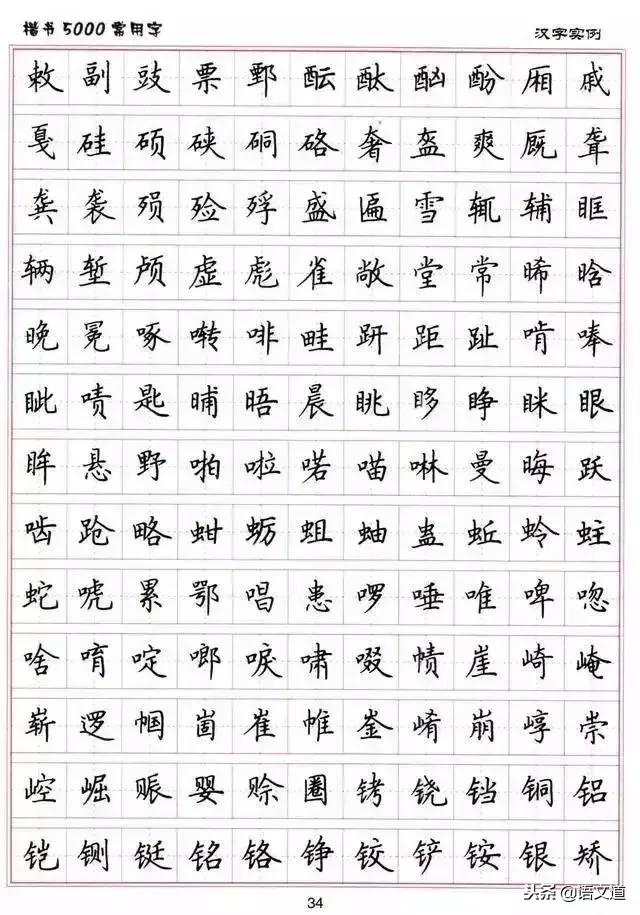 楷书5000常用字 汉字实例
敕副豉票鄄酝酞酗酚厢戚
戛硅硕硖硐硌奢盔爽厩聋
龚袭殒殓殍盛匾雪辄辅眶
辆堑颅虚彪雀敞堂常晞晗
晚冕啄啭啡畦趼距趾啃唪
眦啧匙晡晤晨眺眵睁眯眼
眸悬野啪啦喏喵啉曼晦跃
啮跄略蚶蛎蛆蚰蛊蚯蛉蛀
蛇唬累鄂唱患啰唾唯啤唿
啥唷啶啷唳啸啜帻崖崎崦
崭逻帼崮崔帷崟崤崩崞崇
崆崛赈婴赊圈铐铙铛铜铝
铠铡铤铭铬铮铰铲铵银矫
34
头条@语文道